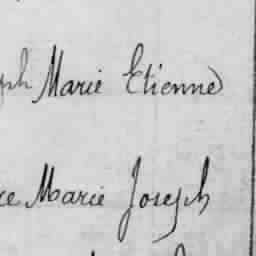 Marie Etienne
Marie Joseph